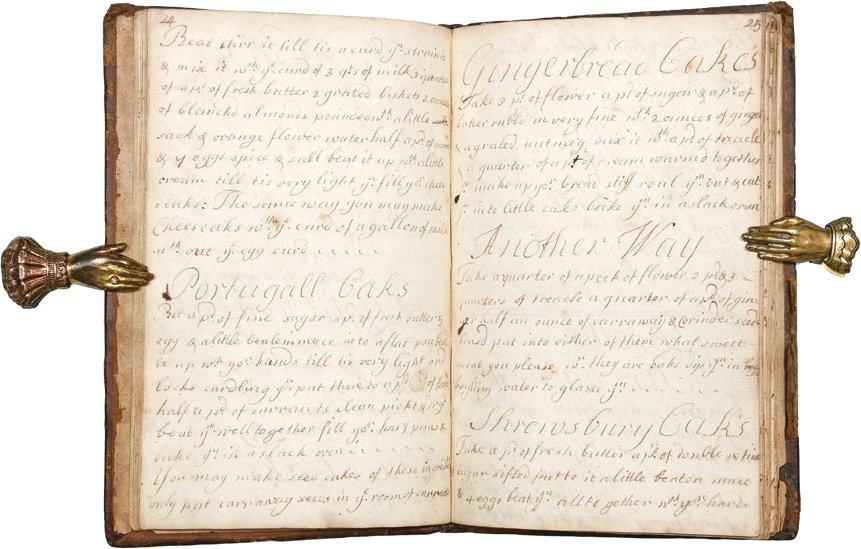 24
Beat stirr it till tis a curd yn. strain it
& mix it wth. ye. curd of 3 qts of milk 3 quarters
of a pd. of fresh butter 2 grated biskets 2 ounces
of blanchd almonds pounded wth. a litle
sack & orange flower water half a pd. of
& 4 eggs spice & salt beat it up wth. a litle
cream till tis very light yn. fill yr. chees
cakes: The same way you may make
Cheescaks wth. ye. curd of a gallon of milk
wth. out ye. egg curd
Portugall Caks
Put a pd. of fine sugar a pd. of fresh butter 5
egg & a litle beaten mace into a flat pan beat
it up wth. yor. hands till tis very light and
looks curdling yn. put thereto a pd. of flower
half a pd. of currants clean pickt &
beat ym. well together fill yor. hart pans &
bake ym. in a slack oven
You may make seed cakes of these ingredi
only put carraway seeds in ye. room of currants
25
Gingerbread Cakes
Take 3 pd. of flower a pd. of sugar & a pd. of
butter rubbd in very fine wth. 2 ounces of ginger
a grated nutmeg mix it wth. a pd. of treacle
& a quarter of a pt. of cream warmd together
yn. make up yor. bread stiff roul ym. out & cut
ym. into little caks bake ym. in a slack oven
Another Way
Take a quarter of a peck of flower 2 pd. & 3
quarters of treacle a quarter of a pd. of gin
ger half an ounce of carraway & Corinder seeds
brusd put into either of them what sweet
meat you please wn. they are bakd dip ym. in
boyling water to glaze ym.
Shrewsbury Cak's
Take a pd. of fresh butter a pd. of double refind
sugar sifted put to it a litle beaten mace
& 4 eggs beat ym. all together wth. yor. hands